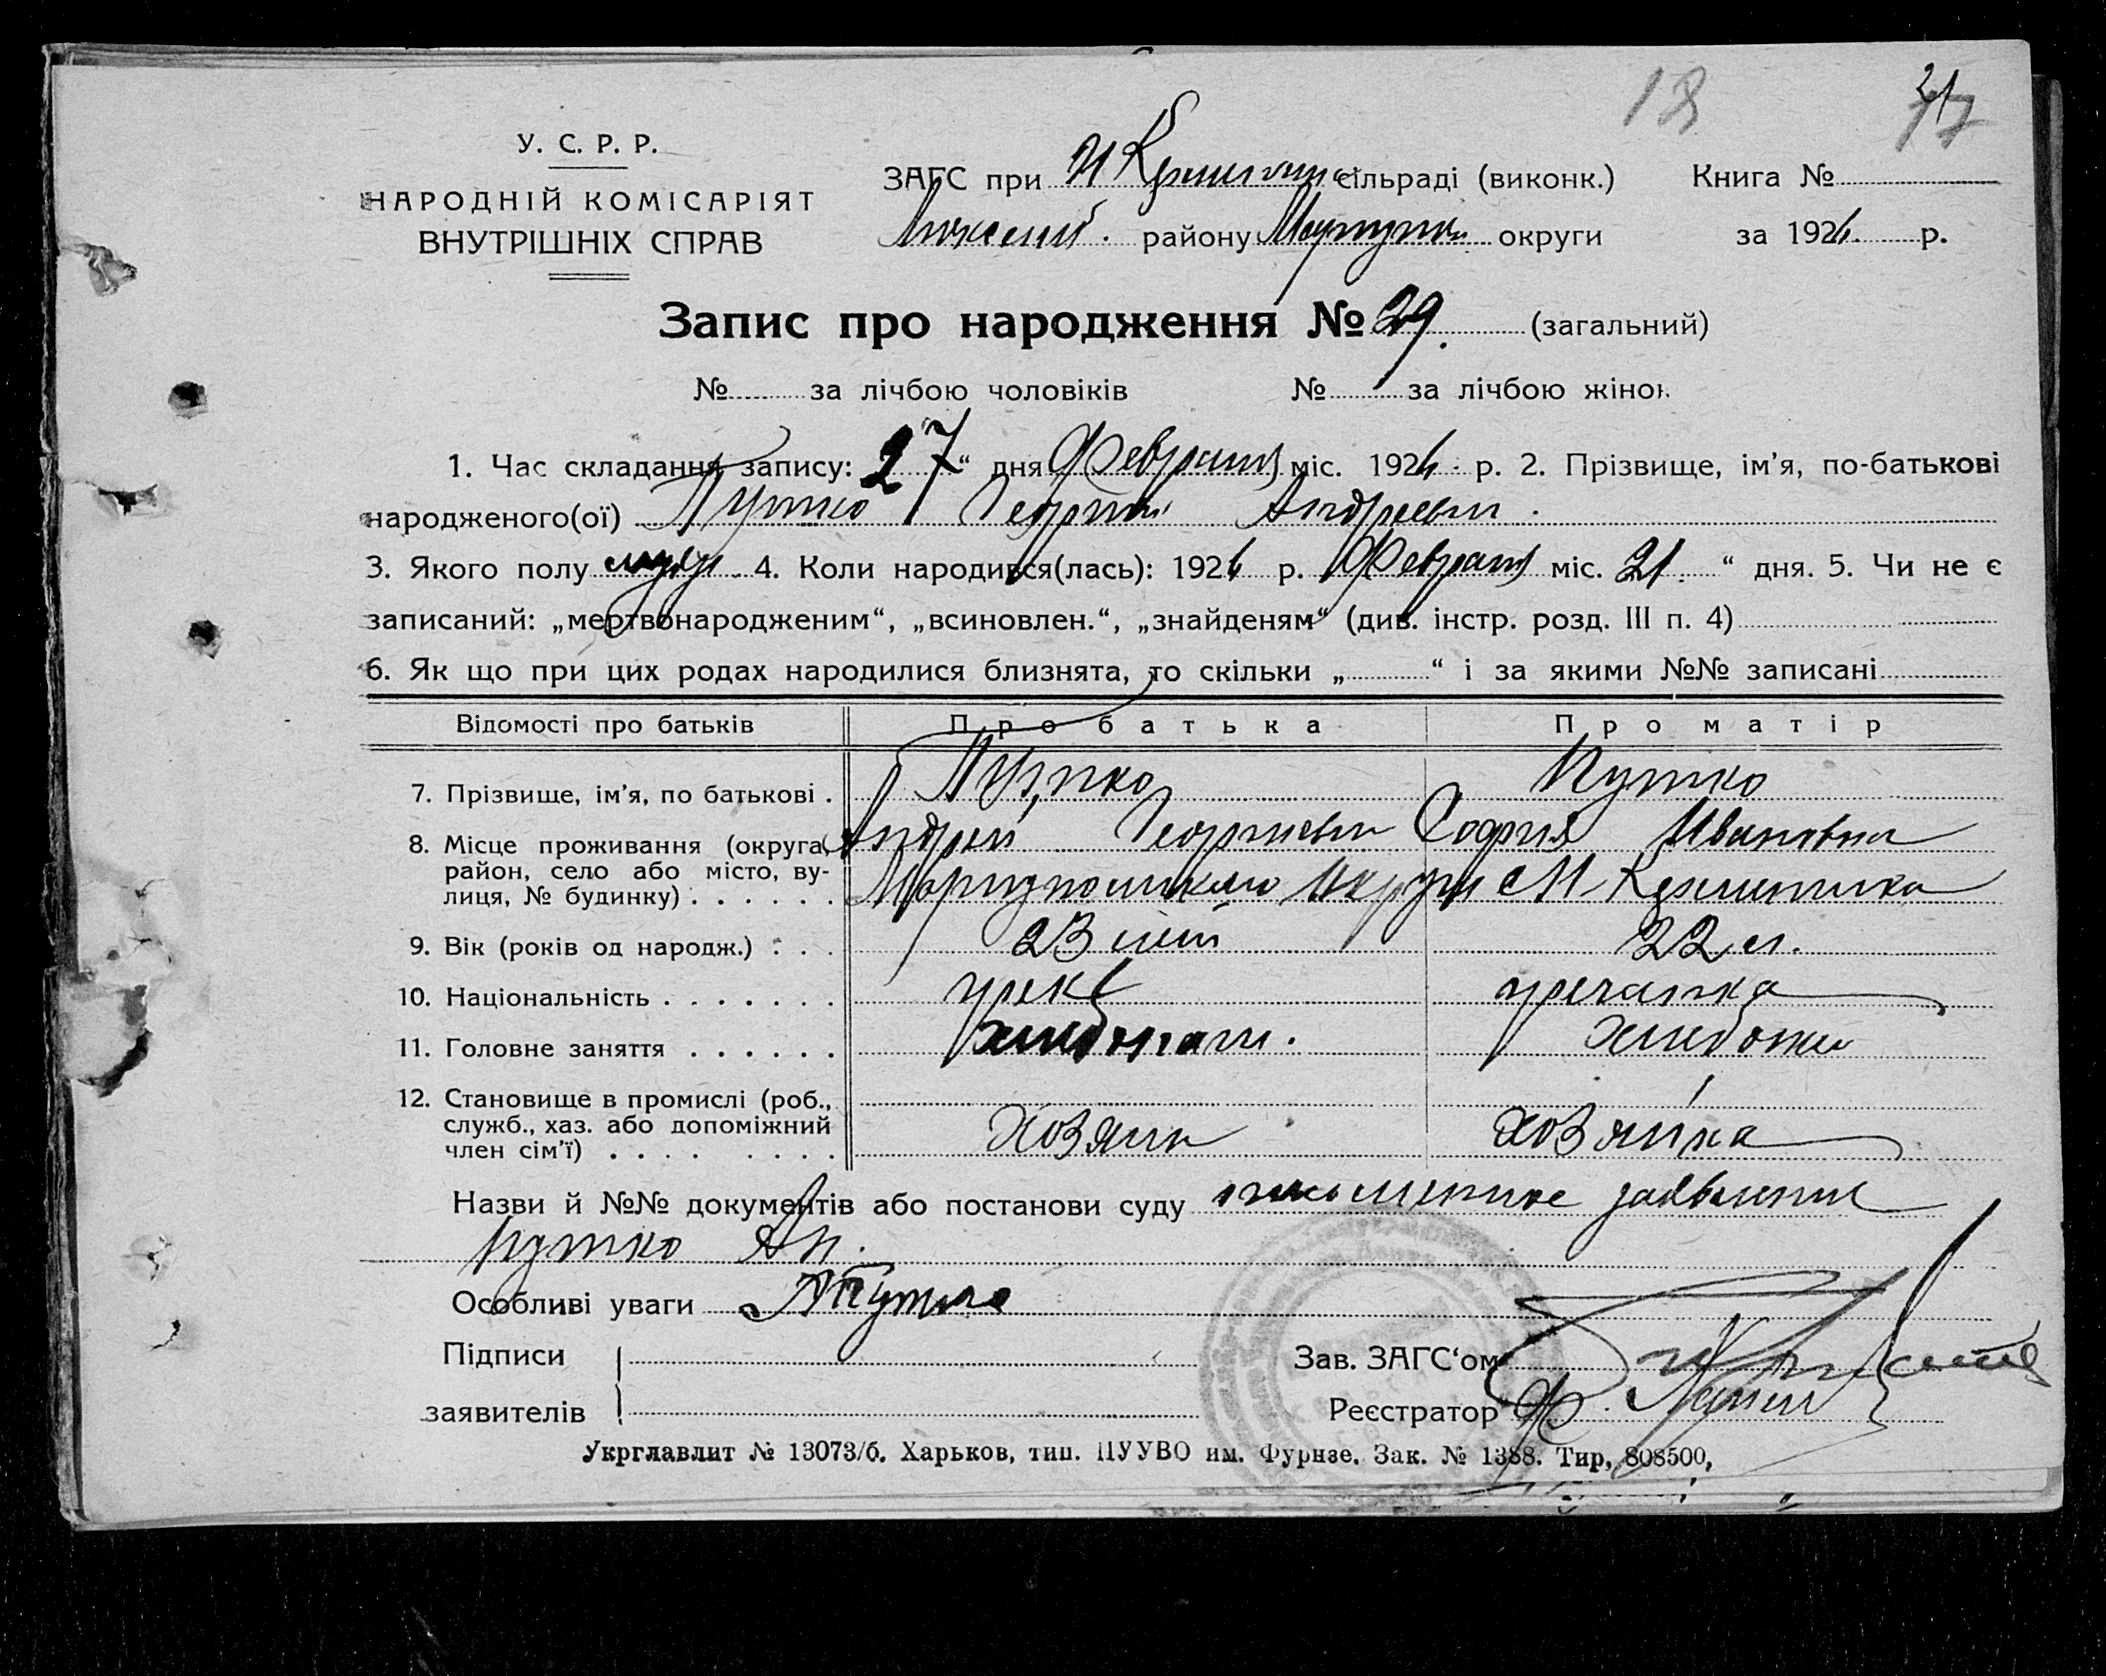 18 21
77
У. С. Р. Р.
НАРОДНІЙ КОМІСАРІЯТ
ВНУТРІШНІХ СПРАВ
ЗАГС при сільраді (виконк.) Книга №
району Мариуп. округи за 192 р.
Запис про народження № 29. (загальний)
№ за лічбою чоловіків № за лічбою жінок
1. Час складання запису: 27 “ дня Февраля міс. 192 р. 2. Прізвище, ім’я, по-батькові
народженого(ої) Путко Георгий Андреевич.
3. Якого полу муж. 4. Коли народився(лась): 192 р. Февраля міс. 21 “ дня. 5. Чи не є
записаний: „мертвонародженим“, „всиновлен.“, „знайденям“ (див. інстр. розд. III п. 4)
6. Як що при цих родах народилися близнята, то скільки „ “ і за якими №№ записані
Відомості про батьків Про батька Про матір
7. Прізвище, ім’я, по батькові . Путко Путко
Андрей Георгиевич София Ивановна
8. Місце проживання (округа,
район, село або місто, ву-
лиця, № будинку) . . . . . . Мариупольского Округи
9. Вік (років од народж.) : . . 23 лет 22 л.
10. Національність . . . . . . . грек гречанка
11. Головне заняття . . . . . . хлебопаш.
12. Становище в промислі (роб.,
служб., хаз. або допоміжний
член сім’ї) . . . . . . . . Хозяин хозяйка
Назви й №№ документів або постанови суду письменное заявление
Путко Ан.
Особливі уваги АПутко
Підписи
заявителів
Зав. ЗАГС‘ом
Реєстратор
Укрглавлит № 13073/б. Харьков, тип. ЦУУВО им. Фурнзе. Зак. № 1388. Тир, 808500,